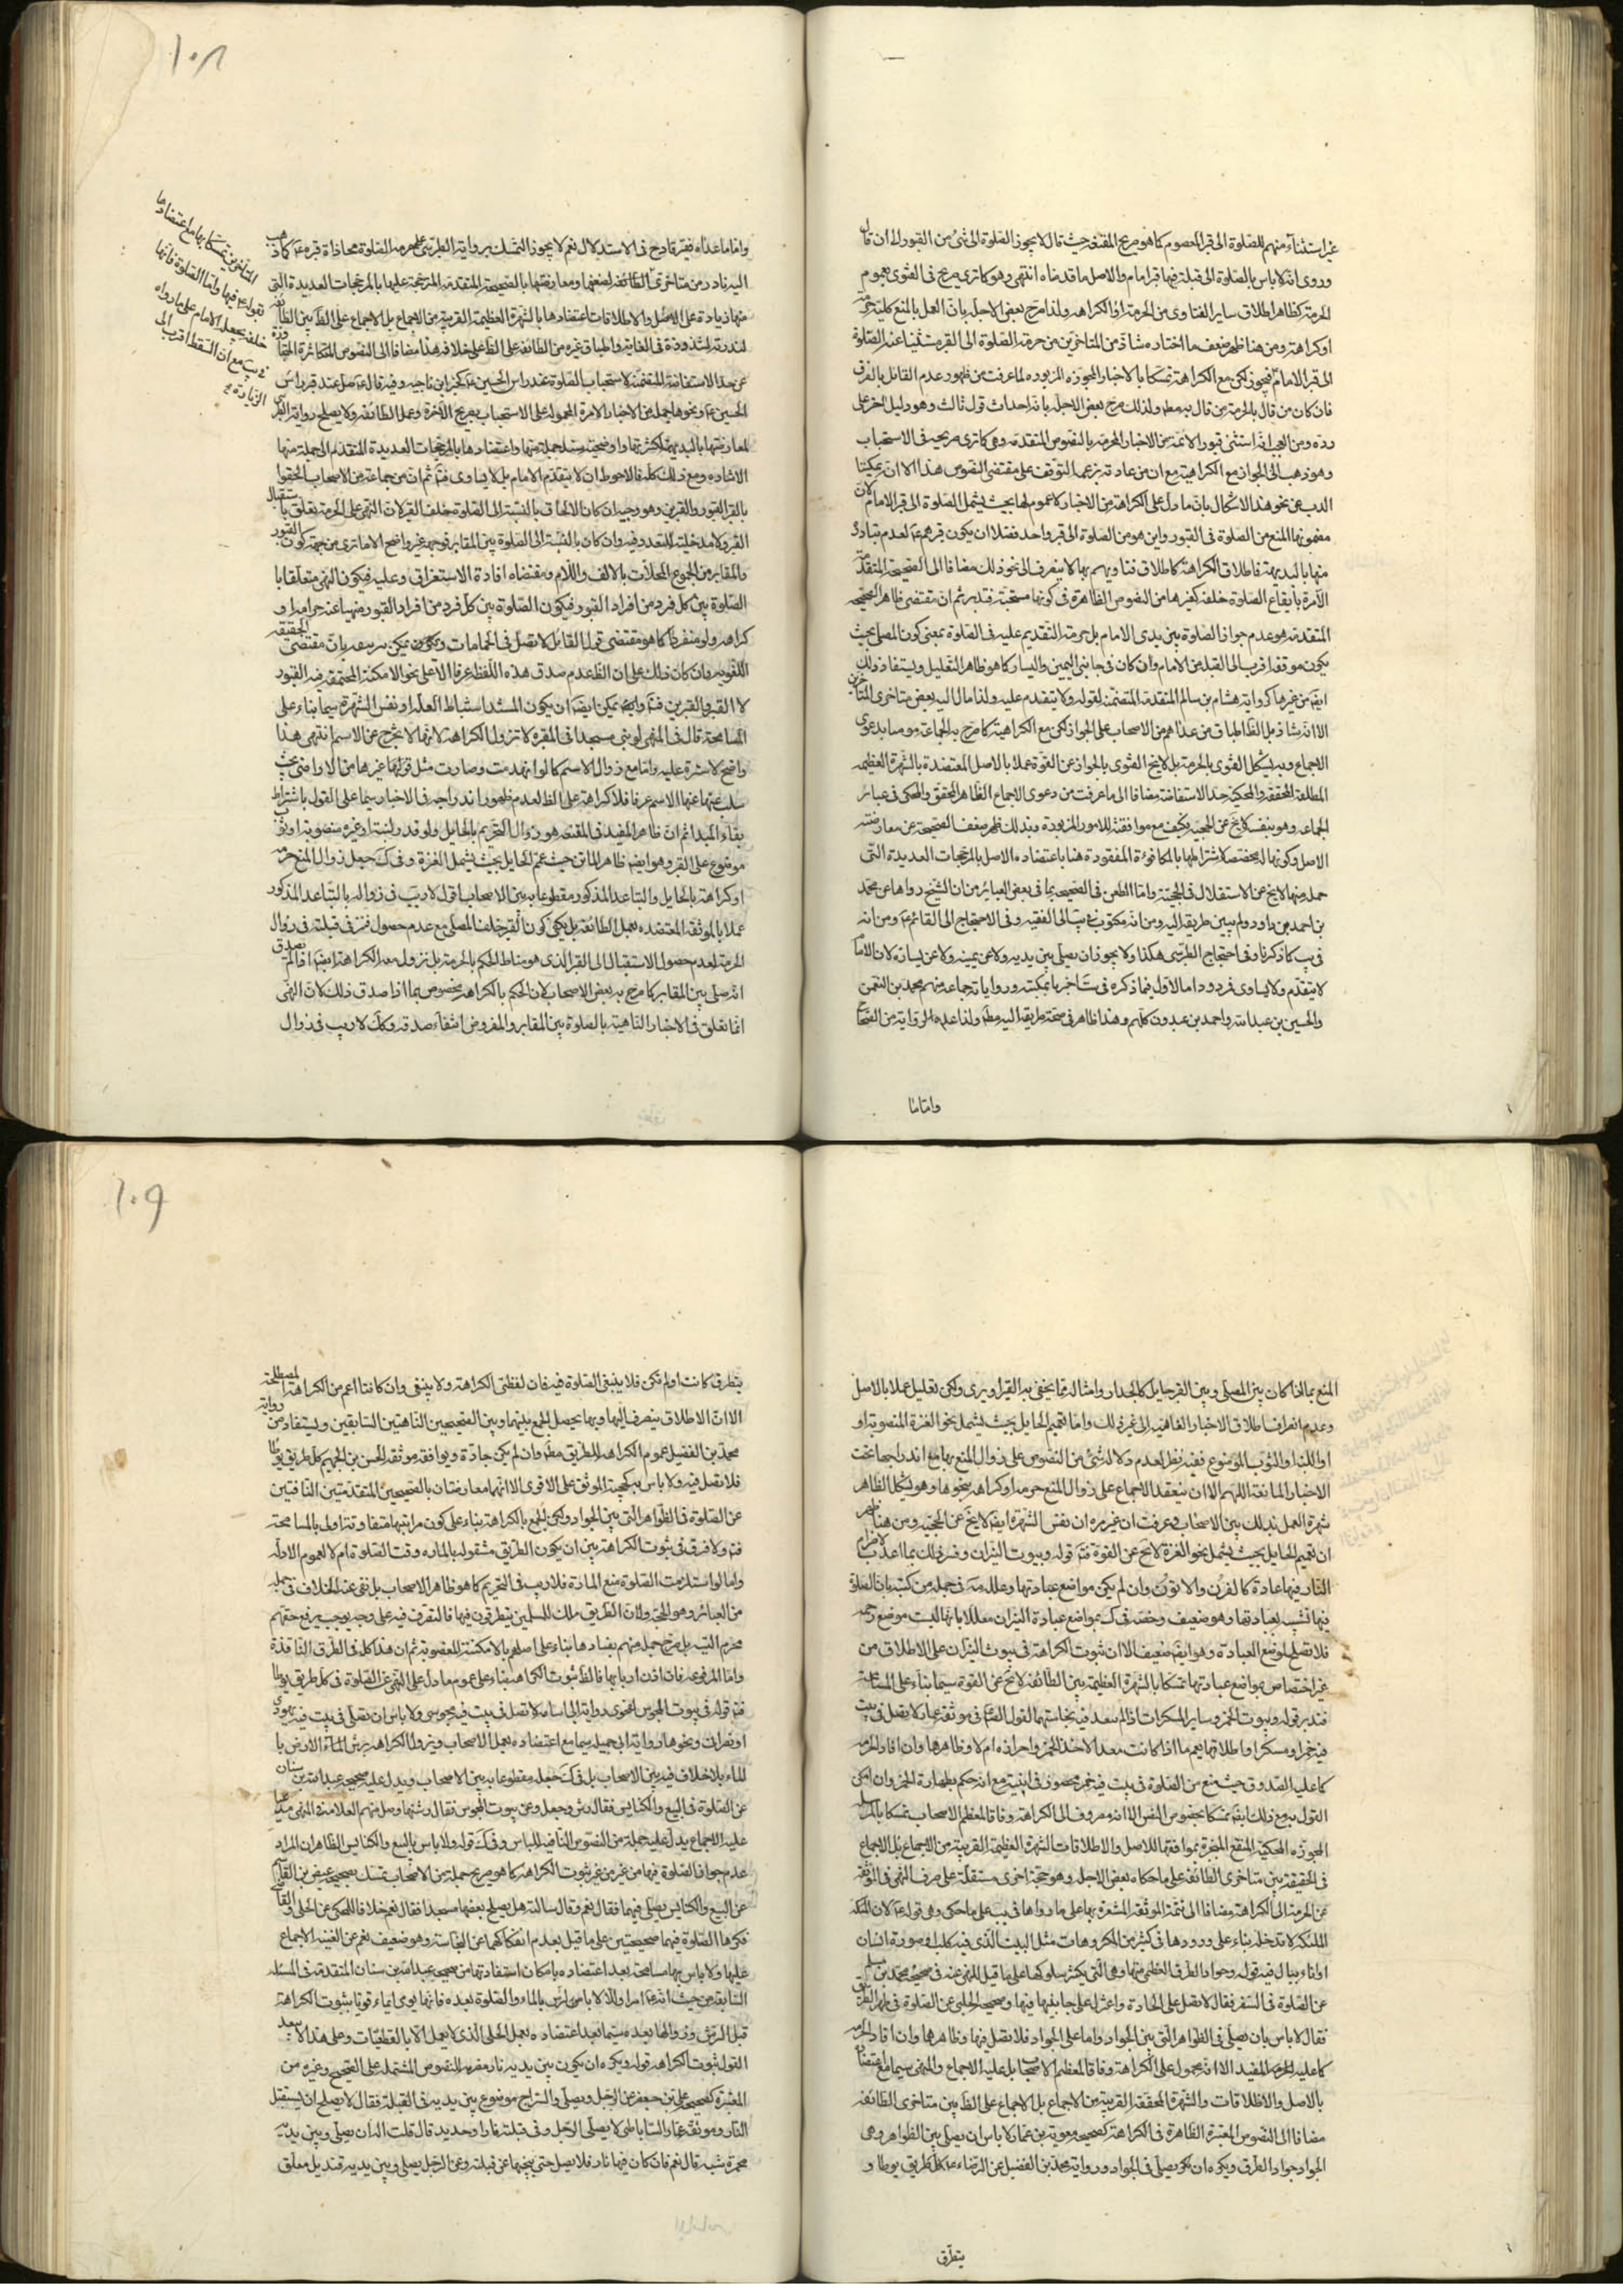 غير استثناء منهم للصلوة الى قبر المعصوم كما هو صريح المقنعة حيث قال لا يجوز الصلوة الى شئ من القبور الى ان قال
وروى انه لا باس بالصلوة الى قبلة فيها قبر امام والاصل ما قدمناه انتهى وهو كما ترى صريح فى الفتوى بعموم
الحرمة كظاهر اطلاق ساير الفتاوى من الحرمة او الكراهة ولذا صرح بعض الاجلة بان العمل بالمنع كلية حرمة
او كراهة ومن هنا ظهر ضعف ما اختاره شاذ من المتاخرين من حرمة الصلوة الى القبر مستثنيا عنه الصلوة
الى قبر الامام فيجوز لكن مع الكراهة تمسكا بالاخبار المجوزة المزبورة لما عرفت من ظهور عدم القائل بالفرق
فان كان من قال بالحرمة من قال به مطه ولذلك صرح بعض الاجلة بانه احداث قول ثالث وهو دليل اخر على
رده ومن العجب انه استثنى قبور الائمة من الاخبار المحرمة بالنصوص المتقدمة وهى كما ترى صريحة فى الاستحباب
وهو ذهب الى الجواز مع الكراهة مع ان من عادته بزعمه التوقف على مقتضى النصوص هذا الا ان يمكننا
الذب عن نحو هذا الاشكال بان ما دل على الكراهة من الاخبار لا عموم لها بحيث يشمل الصلوة الى قبر الامام لان
مضمونها المنع من الصلوة فى القبور واين هو من الصلوة الى قبر واحد فضلا ان يكون قبرهم ع لعدم تبادره
منها بالبديهة فاطلاق الكراهة كاطلاق فتاويهم بها لا ينصرف الى نحو ذلك مضافا الى الصحيحة المتقدمة
الآمرة بايقاع الصلوة خلفه كغيرها من النصوص الظاهرة فى كونها مستحبة فتدبر ثم ان مقتضى ظاهر الصحيحة
المتقدمة هو عدم جواز الصلوة بين يدى الامام بل حرمة التقديم عليه فى الصلوة بمعنى كون المصلى بحيث
يكون موقفه اقرب الى القبلة من الامام وان كان فى جانبى اليمين واليسار كما هو ظاهر التعليل ويستفاد ذلك
ايضا من غيرها كرواية هشام بن سالم المتقدمة المتضمنة لقوله ولا يتقدم عليه ولذا مال اليه بعض متاخرى المتاخرين
الا انه شاذ بل الظ اطباق من عداهم من الاصحاب على الجواز لكن مع الكراهية كما صرح به الجماعة موميا بدعوى
الاجماع وبه يشكل الفتوى بالحرمة بل لا يخ الفتوى بالجواز عن القوة عملا بالاصل المعتضدة بالشهرة العظيمة
المطلقة المحققة والمحكية حد الاستفاضة مضافا الى ما عرفت من دعوى الاجماع الظاهر المحقق والمحكى فى عبائر
الجماعة وهو بنفسه لا يخ عن الحجية فكيف مع موافقته للامور المزبورة وبذلك ظهر ضعف الصحيحة عن معارضته
الاصل وكونها له مخصصة لاشتراطها بالمكافؤة المفقودة هنا باعتضاده الاصل بالمرجحات العديدة التى
جملة منها لا يخ عن الاستقلال فى الحجية واما الطعن فى الصحيحة بما فى بعض العبائر من ان الشيخ رواها عن محمد
بن احمد بن داود ولم يبين طريقه اليه ومن انه مكتوب فى يب الى الفقيه وفى الاحتجاج الى القائم ع ومن انه
فى يب كما ذكرنا وفى احتجاج الطبرسى هكذا ولا يجوز ان يصلى بين يديه ولا عن يمينه ولا عن يساره لان الامام
لا يتقدم ولا يساوى فمردود اما الاول فبما ذكره فى ست اخبرنا بكتبه ورواياته جماعة منهم محمد بن النعمن
والحسين بن عبيد الله واحمد بن عبدون كلهم وهذا ظاهر فى صحة طريقه اليه مطه ولذا عد هذه الرواية من الصحاح
واما ما
١٠٨
واما ما عداه فغير قادح فى الاستدلال نعم لا يجوز التمسك برواية الطبرسى على حرمة الصلوة محاذاة قبره ع كما ذهب
اليه نادر من متاخرى الطائفة لضعفها ومعارضتها بالصحيحة المتقدمة المرجحة عليها بالمرجحات العديدة التى
منها زيادة على الاصل والاطلاقات اعتضادها بالشهرة العظيمة القريبة من الاجماع بل الاجماع على الظ بين الطائفة
لندرته لشذوذة فى الغاية واطباق غيره من الطائفة على الظ على خلافه هذا مضافا الى النصوص المتكاثرة المتجاوزة
عن حد الاستفاضة المتضمنة لاستحباب الصلوة عند راس الحسين ع كخبر ابن ناجية وفيه قال ع صل عند قبر راس
الحسين ع ونحوها جملة من الاخبار الامرة المحمولة على الاستحباب بصريح الآخرة وعمل الطائفة ولا يصلح رواية الطبرسى
لمعارضتها بالبديهة لكثرتها واوضحية سند جملة منها واعتضادها بالمرجحات العديدة المتقدم الى جملة منها
الاشارة ومع ذلك كله فالاحوط ان لا يتقدم الامام بل لا يساوى فتم ثم ان من جماعة من الاصحاب الحقوا
بالقبر القبور والقبرين وهو وجيه ان كان الالحاق بالنسبة الى الصلوة خلف القبر لان النهى على الحرمة يتعلق باستقبال
القبر ولا مدخلية للتعدد فيه وان كان بالنسبة الى الصلوة بين المقابر فوجهه غير واضح الا ما ترى من جهة كون القبور
والمقابر من الجموع المحلات بالالف واللام ومقتضاه افادة الاستغراق وعليه فيكون النهى متعلقا با
الصلوة بين كل فرد من افراد القبور فيكون الصلوة بين كل فرد من افراد القبور منهيا عنه حراما او
كراهة ولو منفردا كما هو مقتضى قول القائل لا تصل فى الحمامات ولكن يمكن بان مقتضى الحقيقة
اللغوية وان كان ذلك على ان الظ عدم صدق هذه اللفظ عرفا الا على نحو الامكنة المجتمعة فيه القبور
لا القبر والقبرين فتم وايضا يمكن ايضا ان يكون المستند استنباط العلة او نفس الشهرة سيما بناء على
المسامحة قال فى المنهى لو بنى مسجدا فى المقبرة لا تزول الكراهة لانها لا يخرج عن الاسم انتهى هذا
واضح لا سترة عليه واما مع زوال الاسم كما لو انهدمت وصارت مثل قولها غيرها من الاراضى بحيث
سلب عنها الاسم عرفا فلا كراهة على الظ لعدم ظهور اندراجه فى الاخبار سيما على القول باشتراط
بقاء المبدا ثم ان ظاهر المفيد فى المقنعة هو زوال التحريم بالحايل ولو قدر لبنة او عنزة منصوبة او ثوب
موضوع على القبر وهو ايضا ظاهر الماتن حيث عمم الحايل بحيث يشمل العنزة وفى ك جعل زوال المنع حرمة
او كراهة بالحايل والتباعد المذكور مقطوعا به بين الاصحاب اقول لا ريب فى زواله بالتباعد المذكور
عملا بالموثقة المعتضدة بعمل الطائفة بل يكفى كون القبر خلف المصلى مع عدم حصول قبر فى قبلته فى زوال
الحرمة لعدم حصول الاستقبال الى القبر الذى هو مناط الحكم بالحرمة بل تزول معه الكراهة ايضا اذا لم يصدق
انه صلى بين المقابر كما صرح به بعض الاصحاب لان الحكم بالكراهة مخصوص بما اذا صدق ذلك لان النهى
انما تعلق فى الاخبار الناهية بالصلوة بين المقابر والمفروض انتفاء صدقه وكك لا ريب فى زوال
المتاخرين تمسكا بها مع اعتضادها
بقوله ع فيها واما الصلوة فانها
خلفه يجعل الامام على ما رواه
فى يب مع ان السقط اقرب الى
الزيادة
المنع بما اذا كان بين المصلى وبين القبر حايل كالجدار وامثاله مما يختفى به القبر او يرى ولكن تقليل عملا بالاصل
وعدم انصراف اطلاق الاخبار الناهية الى غير ذلك واما تعميم الحايل بحيث يشمل نحو العنزة المنصوبة او
او اللبنة او الثوب الموضوع ففيه نظر لعدم دلالة شئ من النصوص على زوال المنع بها مع اندراجها تحت
الاخبار المانعة اللهم الا ان ينعقد الاجماع على زوال المنع حرمة او كراهة بنحوها وهو يشكل الظاهر
شهرة العمل بذلك بين الاصحاب وعرفت ان غير مرة ان نفس الشهرة ايضا لا يخ عن الحجية ومن هنا ظهر
ان تعميم الحايل بحيث يشمل نحو العنزة لا يخ عن القوة فتم قوله وبيوت النيران وفسر ذلك بما اعد لاضرام
النار فيها عادة كالفرن والاتون وان لم يكن مواضع عبادتها وعلله مه فى جملة من كتبه بان الصلوة
فيها تشبه بعبادتها وهو ضعيف وخصه فى ك بمواضع عبادة النيران معللا بانها ليست موضع رحمة
فلا تصلح لموضع العبادة وهو ايضا ضعيف الا ان ثبوت الكراهة فى بيوت النيران على الاطلاق من
غير اختصاص بمواضع عبادتها تمسكا بالشهرة العظيمة بين الطائفة لا يخ عن القوة سيما بناء على المسامحة
فتدبر قوله وبيوت الخمر وساير المسكرات اذا لم يتعد فيه نجاستهما القول الصادق فى موثقة عمار لا تصل فى بيت
فيه خمر او مسكر واطلاقها يعم ما اذا كانت معدا لاخذ الخمر واحرازه ام لا وظاهرها وان افاد الحرمة
كما عليه الصدوق حيث منع من الصلوة فى بيت فيه خمر محصور فى انية مع انه حكم بطهارة الخمر وان امكن
القول به مع ذلك ايضا تمسكا بخصوص النص الا انه مصروف الى الكراهة وفاقا لمعظم الاصحاب تمسكا بالمرسلة
المجوزة المحكية المقنع المنجبرة بموافقتها للاصل والاطلاقات الشهرة العظيمة القريبة من الاجماع بل الاجماع
فى الحقيقة بين متاخرى الطائفة على ما حكاه بعض الاجلة وهو حجة اخرى مستقلة على صرف النهى فى الموثقة
عن الحرمة الى الكراهة مضافا الى تتمة الموثقة المشعرة بها على ما رواها فى يب على ما حكى وهى قوله ع لان الملئكة
الملئكة لا تدخله بناء على ورودها فى كثير من المكروهات مثل البيت الذى فيه كلب او صورة انسان
او اناء يبال فيه قوله وجواد الطرق العظمى منها وهى التى يكثر سلوكها على ما قيل للنهى عنه فى صحيح محمد بن مسلم
عن الصلوة فى السفر فقال لا تصل على الجادة واعتزل على جانبيها فيها وصحيح الحلبى عن الصلوة فى ظهر الطريق
فقال لا باس بان يصلى فى الظواهر التى بين الجواد واما على الجواد فلا تصل فيها وظاهرها وان افاد الحرمة
كما عليه المفيد الا انه محمول على الكراهة وفاقا لمعظم الاصحاب بل عليه الاجماع والنهى سيما مع اعتضاده
بالاصل والاطلاقات والشهرة المحققة القريبة من الاجماع بل الاجماع على الظ بين متاخرى الطائفة
مضافا الى النصوص المعتبرة الظاهرة فى الكراهة كصحيحة معوية بن عمار لا باس ان يصلى بين الظواهر وهى
الجواد جواد الطرق ويكره ان يصلى فى الجواد ورواية محمد بن الفضيل عن الرضاء ع كل طريق يوطا و
يتطرق
١٠٩
يتطرق كانت او لم تكن فلا ينبغى الصلوة فيه فان لفظتى الكراهة ولا ينبغى وان كانتا اعم من الكراهة المصطلحة
الا ان الاطلاق ينصرف اليها وبها يحصل الجمع بينهما وبين الصحيحين الناهيتين السابقين ويستفاد من رواية
محمد بن الفضيل عموم الكراهة للطريق مطه وان لم يكن جادة ويوافقه موثقة الحسن بن الجهم كل طريق يوطا
فلا تصل فيه ولا باس به لحجية الموثق على الاقوى الا انهما معارضتان بالصحيحين المتقدمتين النافيتين
عن الصلوة فى الظواهر التى بين الجواد ولكن الجمع بالكراهة بناء على كون مراتبها متفاوتة اولى بالمسامحة
فتم ولا فرق فى ثبوت الكراهة بين ان يكون الطريق مشغوله بالمارة وقت الصلوة ام لا لعموم الادلة
واما لو استلزمت الصلوة منع المارة فلا ريب فى التحريم كما هو ظاهر الاصحاب بل نفى عنه الخلاف فى جملة
من العبائر وهو الحجة ولان الطريق ملك للمسلمين يتطرقون فيها فالتصرف فيه على وجه يوجب رفع حقهم
محرم البتة بل صرح جملة منهم بفسادها بناء على اصلهم بالامكنة المغصوبة ثم ان هذا كله فى الطرق النافذة
واما المرفوعة فان اذن اربابها فالظ ثبوت الكراهة بناء على عموم ما دل على النهى عن الصلوة فى كل طريق يوطا
فتم قوله فى بيوت المجوس لفحوى رواية ابى اسامة لا تصل فى بيت فيه مجوسى ولا باس ان تصلى فى بيت فيه يهودى
او نصرانى ونحوها رواية ابى جميلة سيما مع اعتضاده بعمل الاصحاب ويزول الكراهة برش الماء الارض با
لماء بلا خلاف فيه بين الاصحاب بل فى ك جعله مقطوعا به بين الاصحاب ويدل عليه صحيحة عبد الله بن سنان
عن الصلوة فى البيع والكنايس فقال رش وصل وعن بيوت المجوس فقال رشها وصل منهم العلامة فى المنهى مدعيا
عليه الاجماع يدل عليه جملة من النصوص النافية للباس وفى ك قوله ولا باس بالبيع والكنايس الظاهر ان المراد
عدم جواز الصلوة فيها من غير من غير ثبوت الكراهة كما هو صريح جملة من الاصحاب تمسك بصحيحة عيص بن القاسم
عن البيع والكنايس يصلى فيهما فقال نعم وقال سالته هل يصلح بعضها مسجدا فقال نعم خلافا للمحكى عن الحلى والقاضى
فكرها الصلوة فيهما صحيحتين على ما قيل بعدم انفكاكهما عن النجاسة وهو ضعيف نعم عن الغنية الاجماع
عليها ولا باس بها مسامحة بعد اعتضاده بامكان استفادتها من صحيحة عبد الله بن سنان المتقدمة فى المسئلة
السابقة من حيث انه ع امر اولا لا باس بارش بالماء والصلوة بعده فانها يومى ايماء قويا بثبوت الكراهة
قبل الرش وزوالها بعده سيما بعد اعتضاده بعمل الحلى الذى لا يعمل الا بالقطعيات وعلى هذا لا يبعد
القول بثبوت الكراهة قوله ويكره ان يكون بين يديه نار مضرمة للنصوص المشتملة على الصحيح وغيره من
المعتبرة كصحيحة على بن جعفر عن الرجل ويصلى والسراج موضوع بين يديه فى القبلة فقال لا يصلح ان يستقبل
النار وموثق عمار الساباطى لا يصلى الرجل وفى قبلته نار او حديد قال قلت اله ان يصلى وبين يديه
مجمرة شبه قال نعم فان كان فيها نار فلا يصل حتى ينحيها عن قبلته وعن الرجل يصلى وبين يديه قنديل معلق